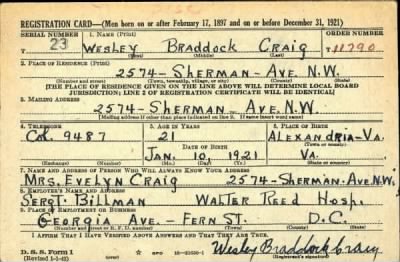 REGISTRATION CARD—(Men born on or after February 17, 1897 and on or before December 31, 1921)
SERIAL NUMBER 1. NAME (Print) ORDER NUMBER
23 Wesley Braddock Craig 11790
(First) (Middle) (Last)
2. PLACE OF RESIDENCE (Print)
2574-Sherman-Ave. N.W.
(Number and street) (Town, township, village, or city) (County) (State)
[THE PLACE OF RESIDENCE GIVEN ON THE LINE ABOVE WILL DETERMINE LOCAL BOARD
JURISDICTION; LINE 2 OF REGISTRATION CERTIFICATE WILL BE IDENTICAL]
3. MAILING ADDRESS
2574-Sherman-Ave. N.W.
(Mailing address if other than place indicated on line 2. If same insert word same)
4. TELEPHONE 5. AGE IN YEARS 6. PLACE OF BIRTH
Col. 9487 21 Alexandria-Va.
DATE OF BIRTH (Town or county)
Jan. 10, 1921 Va.
(Exchange) (Number) (Mo.) (Day) (Yr.) (State or country)
7. NAME AND ADDRESS OF PERSON WHO WILL ALWAYS KNOW YOUR ADDRESS
Mrs. Evelyn Craig 2574-Sherman-Ave. N.W.
8. EMPLOYER'S NAME AND ADDRESS
Sergt. Billman Walter Reed Hosp.
9. PLACE OF EMPLOYMENT OR BUSINESS
Georgia Ave.-Fern St. D.C.
(Number and street or R. F. D. number) (Town) (County) (State)
I AFFIRM THAT I HAVE VERIFIED ABOVE ANSWERS AND THAT THEY ARE TRUE.
D. S. S. Form 1
(Revised 1-1-42) GPO 16—21630-1 Wesley Braddock Craig
(Registrant's signature)